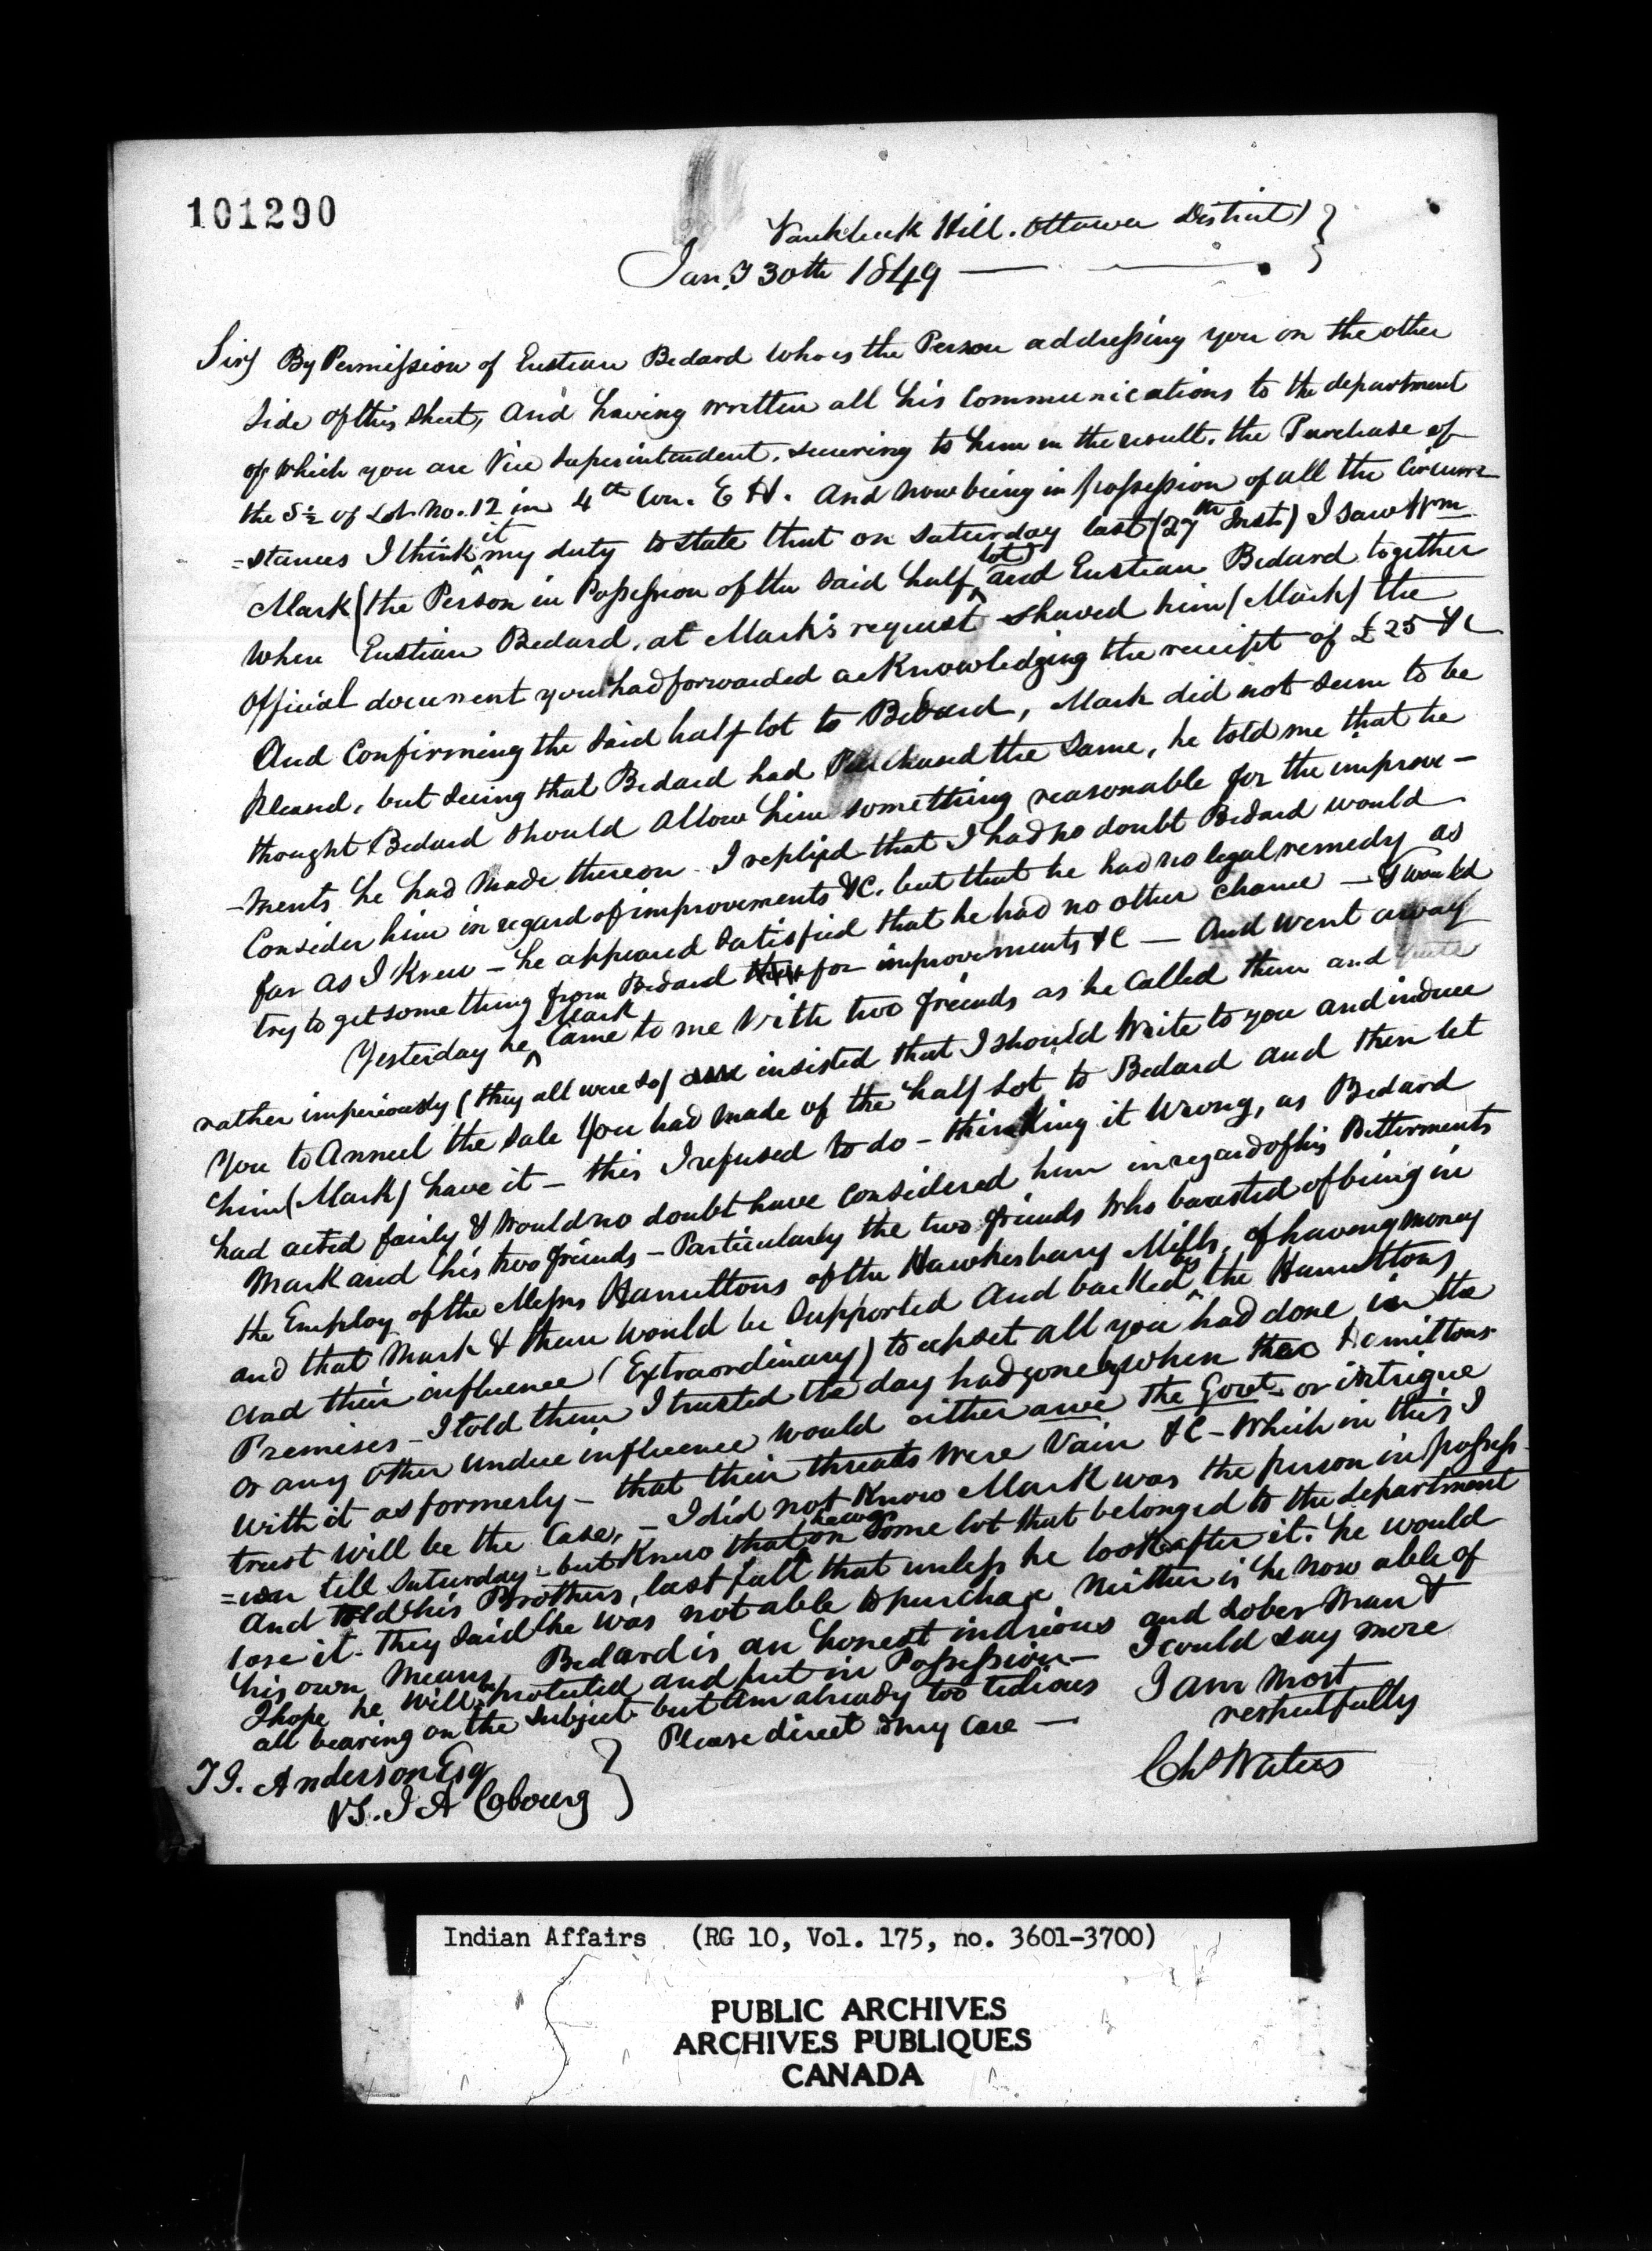 101290
Vankleek Hill. Ottawa District }
Jany 30th 1849 —
Sir/ By Permission of Eustian Bedard who is the Person addressing you on the other
side of this sheet, and having written all his communications to the department
of which you are Vice Superintendent. securing to him in the result. the Purchase of
the S½ of Lot No. 12 in 4th Con. E H. And now being in possession of all the Circum=
=stances I think it my duty to state that on Saturday last (27th Inst) I saw Wm
Mark (the Person in Possession of the said half lot) and Eustian Bedard together
When Eustian Bedard, at Mark's request shewed him (Mark) the
Official document you had forwarded acknowledging the receipt of £25 &c
And Confirming the said half lot to Bedard, Mark did not seem to be
pleased, but seeing that Bedard had Purchased the Same, he told me that he
thought Bedard should allow him something reasonable for the improve–
–ments he had made thereon I replied that I had no doubt Bedard would
Consider him in regard of improvements &c. but that he had no legal remedy as
far as I Knew – he appeared satisfied that he had no other chance – & would
try to get something from Bedard for improvements &c — And went away
Yesterday he Mark Came to me With two friends as he Called them and quite
rather imperiously (they all were so) insisted that I should Write to you and induce
You to Annul the Sale You had made of the half Lot to Bedard and then let
him (Mark) have it – this I refused to do – thinking it Wrong, as Bedard
had acted fairly & Would no doubt have Considered him in regard of his Betterments
Mark and his two friends – Particularly the two friends Who boasted of being in
the Employ of the Messrs Hamiltons of the Hawkesbury Mills, of having money
and that Mark & them Would be Supported And backed by the Hamiltons
And their influence (Extraordinary) to upset all you had done in the
Premises – I told them I trusted the day had gone by when the Hamiltons
or any Other undue influence would either awe the Govt or intrigue
With it as formerly – that their threats Were Vain &c – Which in this I
trust Will be the Case, – I did not Know Mark was the person in possess-
=ion till Saturday – but Knew that he was on Some lot that belonged to the department
And told his Brothers, last fall that unless he look after it. he would
lose it. They said he was not able to purchase Neither is he now able of
his own Means, Bedard is an honest indrious and Sober Man &
I hope he will be protected and put in Possession – I could say more
all bearing on the Subject but Am already too tedious
Please direct to my Care —
I am Most
respectfully
Chs Waters
T G. Anderson Esq }
V S. I A Cobourg
Indian Affairs (RG 10, Vol. 175, no. 3601-3700)
PUBLIC ARCHIVES
ARCHIVES PUBLIQUES
CANADA